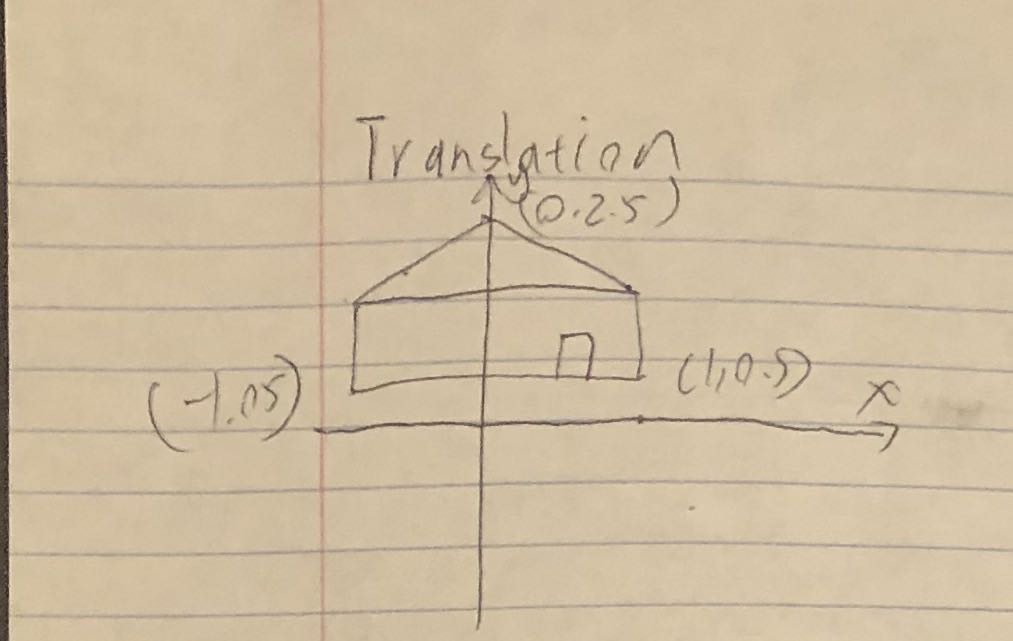 Translation
y
(0.2.5)
(-1.05)
(1,0.5)
x